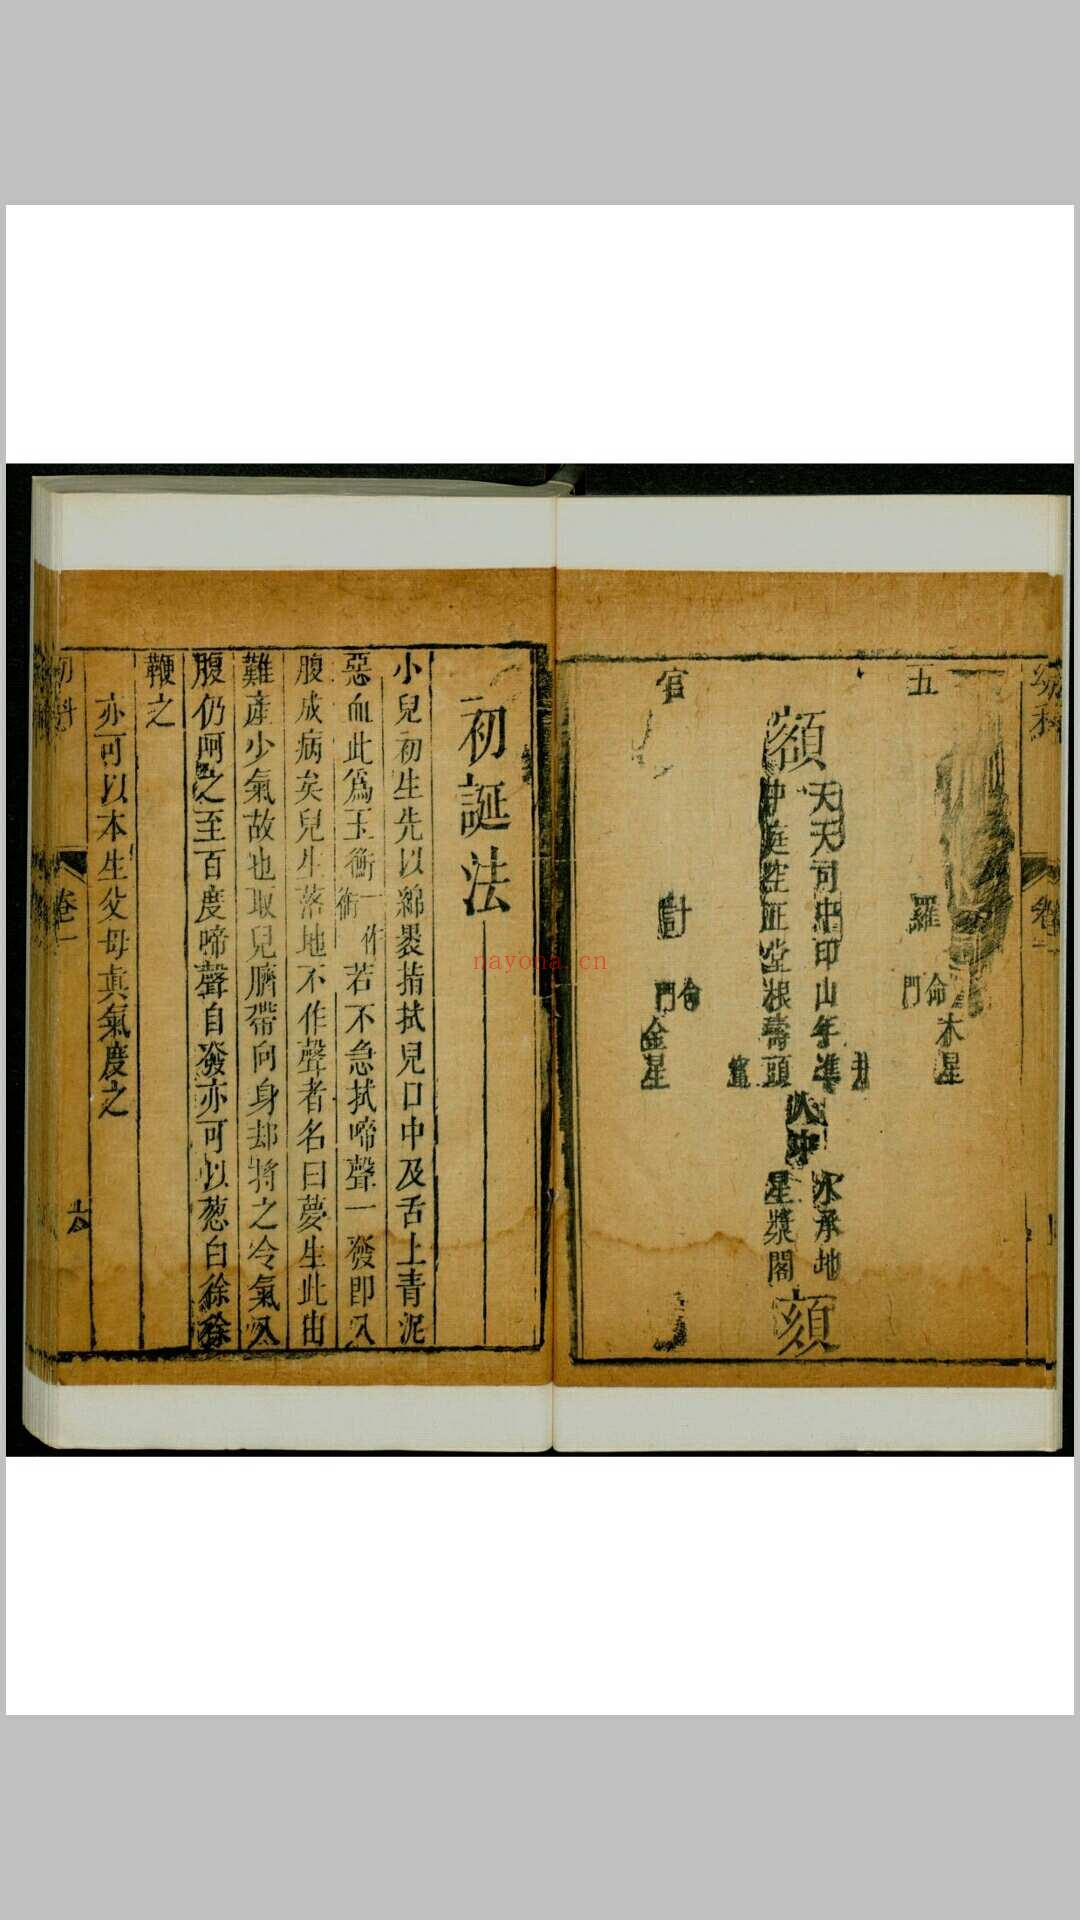 幼科
卷一
五
羅
命門
木星
額
天天司中印山年準
中庭空正堂根壽頭
人中
水承地
星漿閣
頦
官
計
命門
金星
初誕法
小兒初生先以綿褁指拭兒口中及舌上青泥
惡血此爲玉衡一作銜若不急拭啼聲一發即入
腹成病矣兒生落地不作聲者名曰夢生此由
難產少氣故也取兒臍帶向身却將之令氣入
腹仍呵之至百度啼聲自發亦可以葱白徐徐
鞭之
亦可以本生父母真氣度之
幼科
卷一
六
nayona.cn